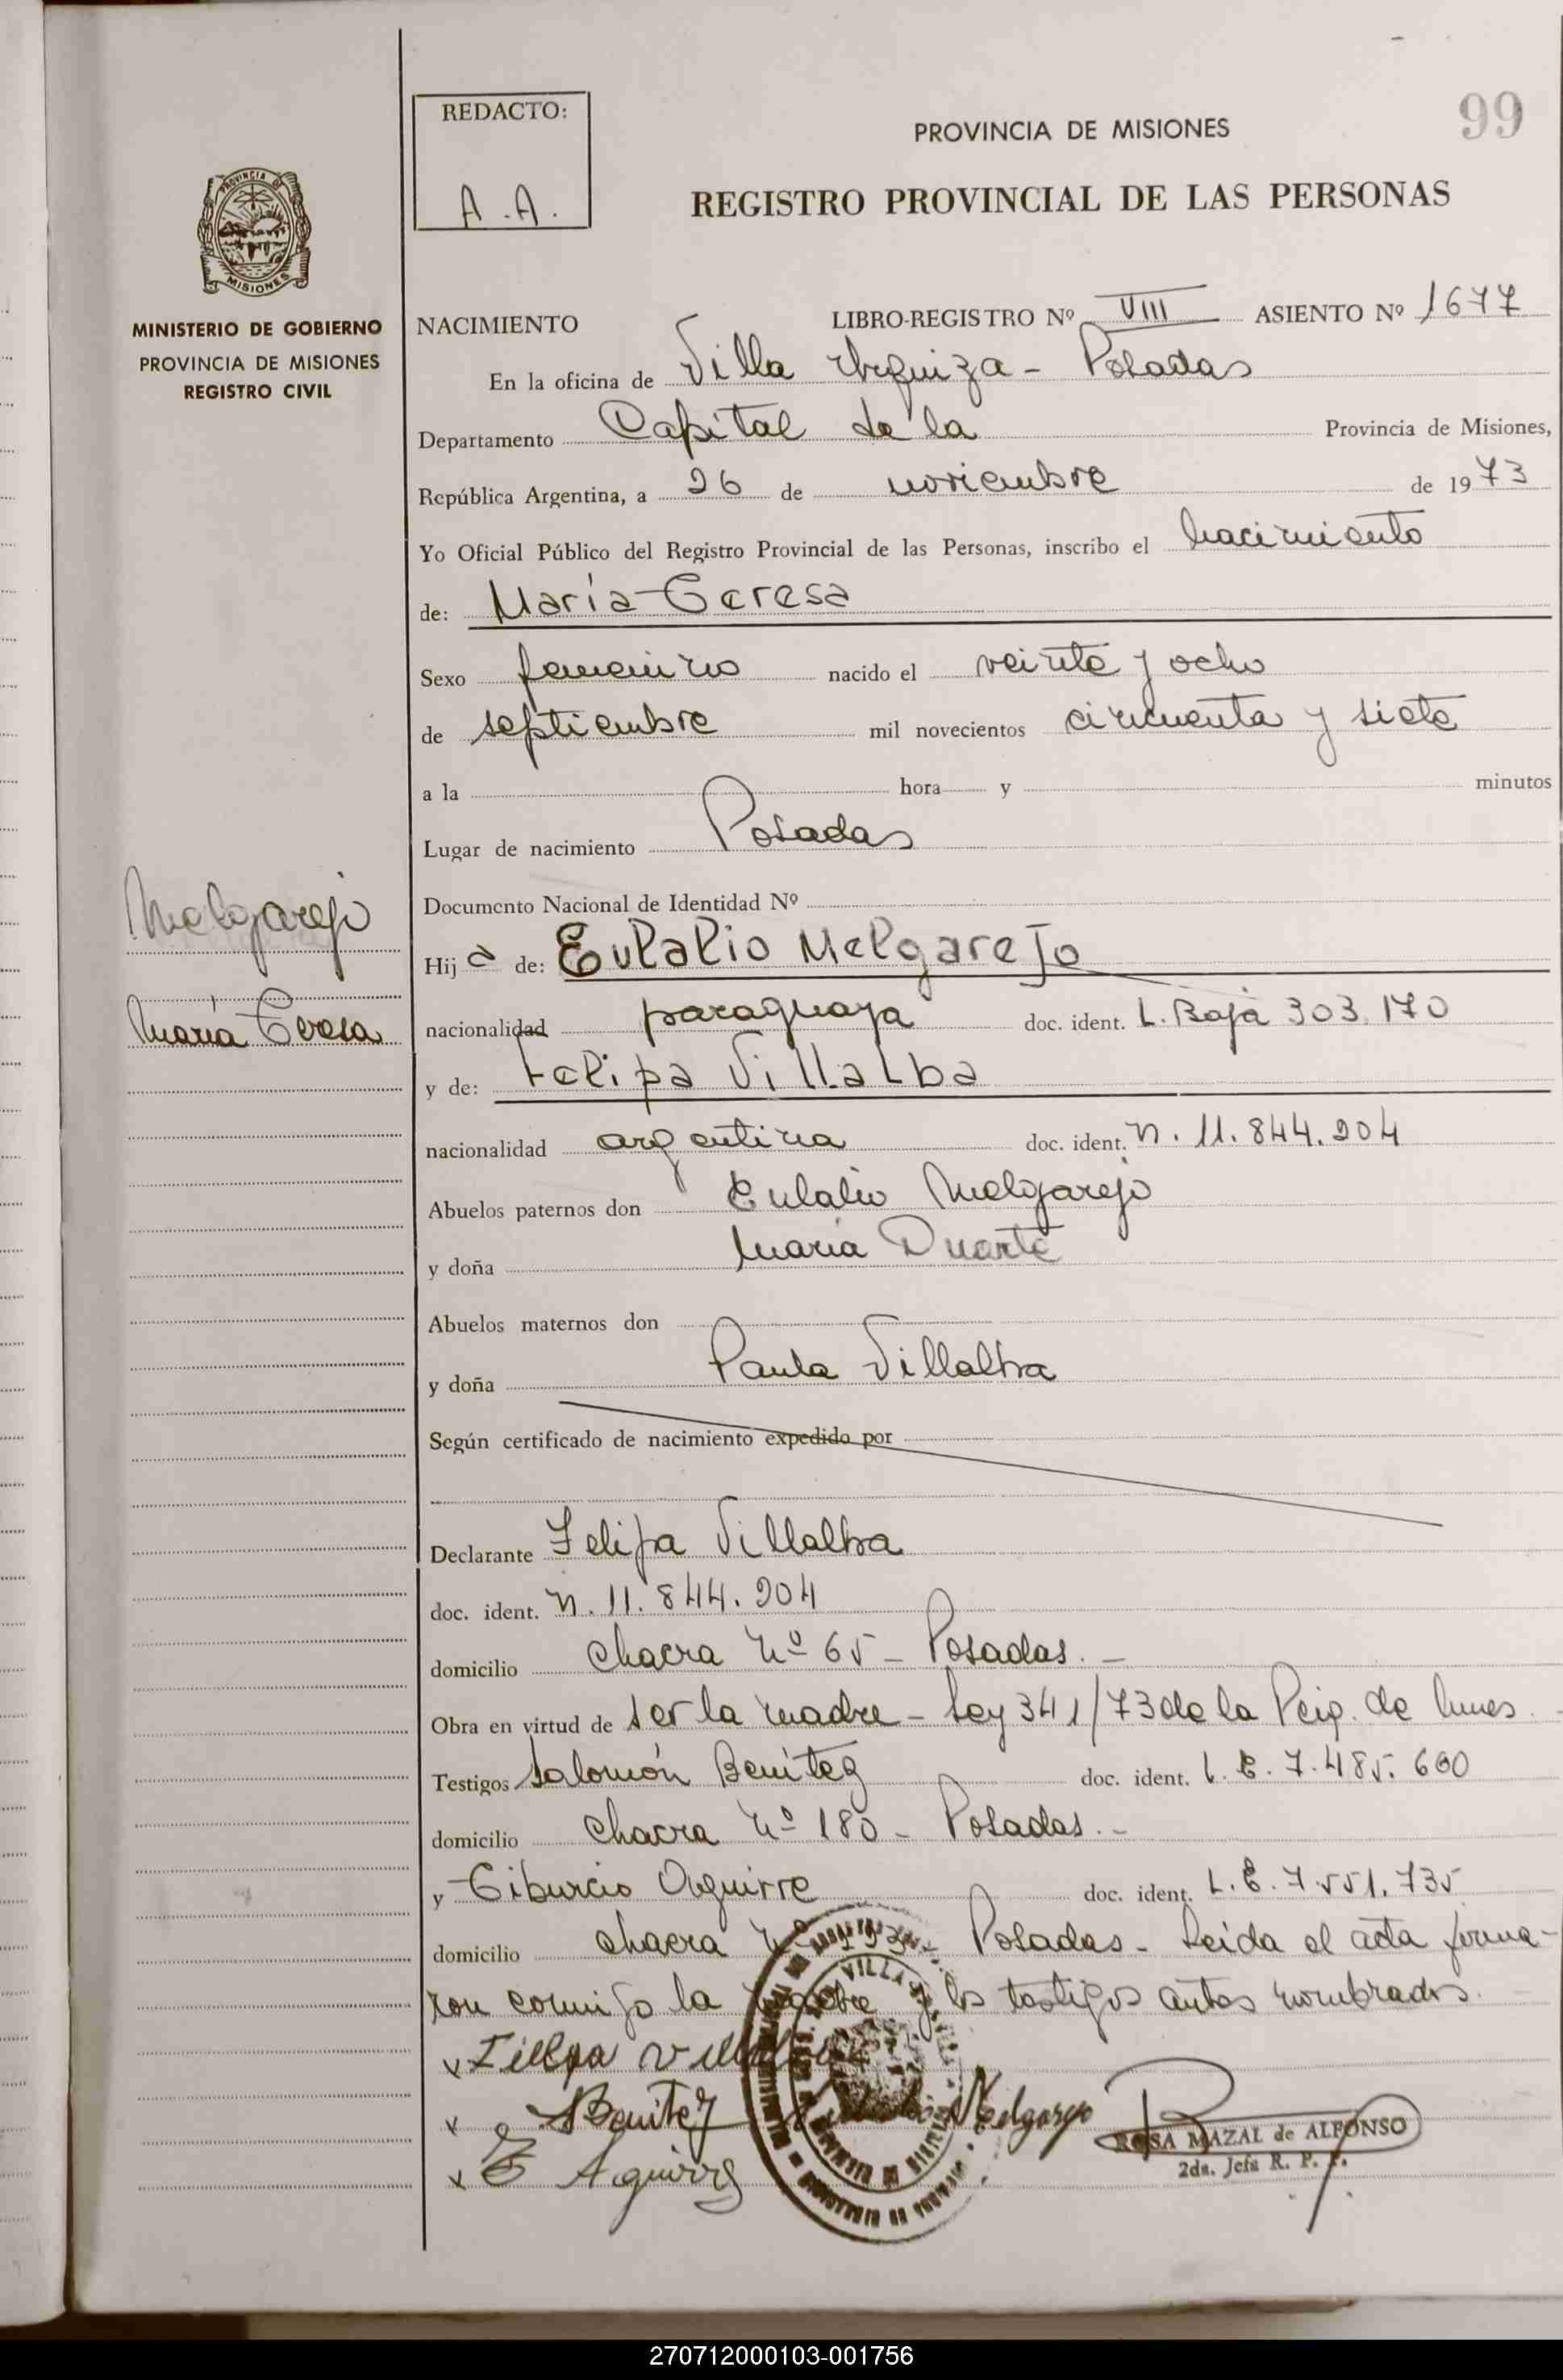 99
REDACTO:
A.A.
PROVINCIA DE MISIONES
REGISTRO PROVINCIAL DE LAS PERSONAS
PROVINCIA DE
MISIONES
MINISTERIO DE GOBIERNO
PROVINCIA DE MISIONES
REGISTRO CIVIL
NACIMIENTO LIBRO-REGISTRO Nº VIII ASIENTO Nº 1677
En la oficina de Villa Urquiza - Posadas
Departamento Capital de la Provincia de Misiones,
República Argentina, a 26 de noviembre de 1973
Yo Oficial Público del Registro Provincial de las Personas, inscribo el nacimiento
de: María Teresa
Sexo femenino nacido el veinte y ocho
de septiembre mil novecientos cincuenta y siete
a la hora y minutos
Lugar de nacimiento Posadas
Documento Nacional de Identidad Nº
Melgarejo
María Teresa
Hija de: Eulalio Melgarejo
nacionalidad paraguaya doc. ident. L. Baja 303.170
y de: Felipa Villalba
nacionalidad argentina doc. ident. n. 11.844.204
Abuelos paternos don Eulalio Melgarejo
y doña María Duarte
Abuelos maternos don
y doña Paula Villalba
Según certificado de nacimiento expedido por
Declarante Felipa Villalba
doc. ident. n. 11.844.204
domicilio chacra nº 65 - Posadas. -
Obra en virtud de ser la madre - Ley 341/73 de la Peig. de
Testigos Salomón Benítez doc. ident. L.E. 7.485.600
domicilio chacra nº 180 - Posadas. -
y Tiburcio Aguirre doc. ident. L.E. 7.551.735
domicilio chacra Posadas - Leida el acta firma-
ron conmigo la madre y los testigos antes nombrados.
x Felipa Villalba
x Benitez Melgarejo
x T Aguirre
VILLA
ROSA MAZAL de ALFONSO
2da. Jefa R. P. P.
270712000103-001756